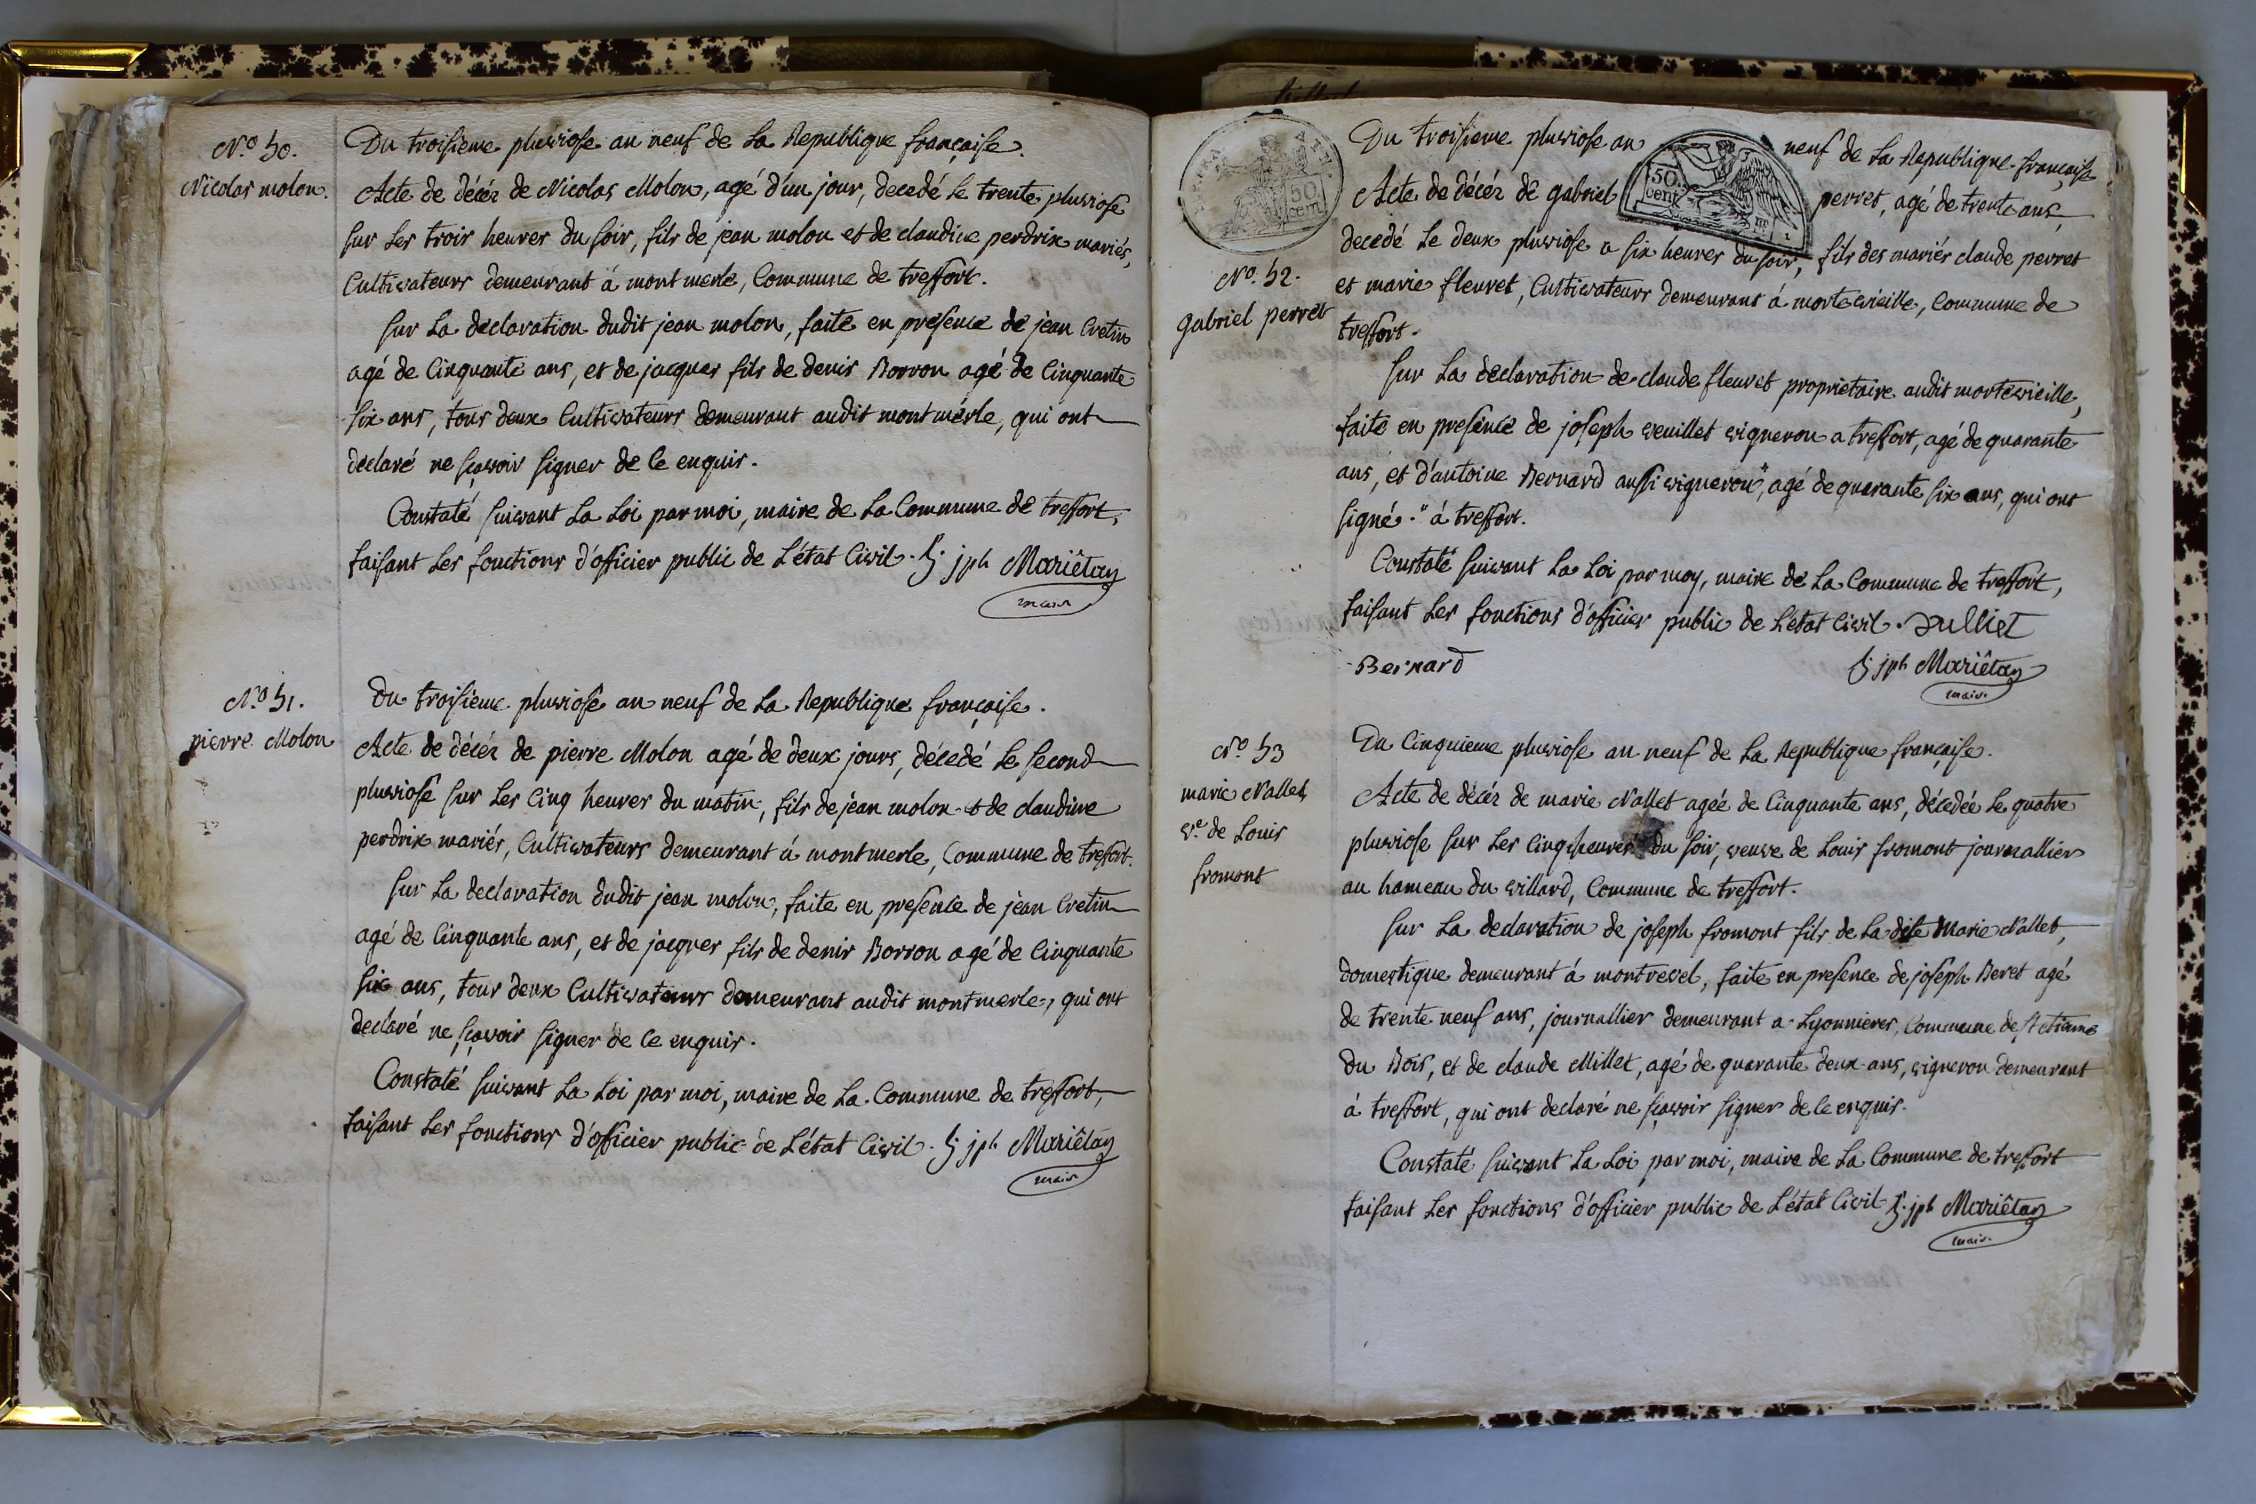 N.º 50.
Nicolas molon.
Du troisieme pluviose an neuf de La Republique française.
Acte de décéz de Nicolas Molon, agé d'un jour, decedé le trente pluviose
sur les trois heures du soir, fils de jean molon et de claudine perdrix mariés,
Cultivateurs demeurant á mont merle, Commune de treffort.
sur La declaration dudit jean molon, faite en presence de jean Cretin
agé de Cinquante ans, et de jacques fils de denis Borron agé de Cinquante
six ans, tous deux Cultivateurs demeurant audit mont merle, qui ont
declaré ne sçavoir signer de ce enquis.
Constaté suivant La Loi par moi, maire de La Commune de treffort,
faisant Les fonctions d'officier public de L'état Civil. jph Mariêtan
maire
N.º 51.
pierre Molon
Du troisieme pluviose an neuf de La Republique française.
Acte de décéz de pierre Molon agé de deux jours, décedé le second
pluviose sur Les Cinq heures du matin, fils de jean molon et de claudine
perdrix mariés, Cultivateurs demeurant á montmerle, Commune de treffort.
sur La declaration dudit jean molon, faite en presence de jean Cretin
agé de Cinquante ans, et de jacques fils de denis Borron agé de Cinquante
six ans, tous deux Cultivateurs demeurant audit montmerle, qui ont
declaré ne sçavoir signer de ce enquis.
Constaté suivant La Loi par moi, maire de La Commune de treffort,
faisant Les fonctions d'officier public de L'état Civil. jph Mariêtan
maire
50
cent
50
cen
N.º 52.
gabriel perret
Du troisieme pluviose an neuf de La Republique française
Acte de décéz de gabriel perret, agé de trente ans,
decedé Le deux pluviose a six heures du soir, fils des mariés claude perret
et marie fleuret, Cultivateurs demeurant á mortevieille, Commune de
treffort.
sur La declaration de claude fleuret proprietaire audit mortevieille,
faite en presence de joseph veuillet vigneron a treffort, agé de quarante
ans, et d'antoine Bernard aussi vigneron", agé de quarante six ans, qui ont
signé." á treffort.
Constaté suivant La Loi par moy, maire de La Commune de treffort,
faisant Les fonctions d'officier public de L'état Civil.
Bernard
jph Mariêtan
maire
N.º 53
marie Nallet
v.e de Louis
fromont
Du Cinquieme pluviose an neuf de La Republique française.
Acte de décéz de marie Nallet agée de Cinquante ans, décedée Le quatre
pluviose sur Les Cinq heures du soir, veuve de Louis fromont journallier
au hameau du villard, Commune de treffort.
sur La declaration de joseph fromont fils de La dite Marie Nallet,
domestique demeurant á montrevel, faite en presence de joseph Beret agé
de trente neuf ans, journallier demeurant a Lyonnieres, Commune de St etienne
du Bois, et de claude Millet, agé de quarante deux ans, vigneron demeurant
á treffort, qui ont declaré ne sçavoir signer de ce enquis.
Constaté suivant La Loi par moi, maire de La Commune de treffort
faisant Les fonctions d'officier public de L'état Civil. jph Mariêtan
maire